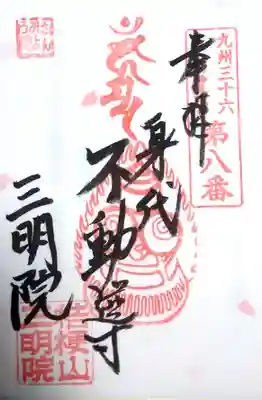 九州三十六
第八番
奉拝
身代
不動尊
三明院
桔梗山
三明院